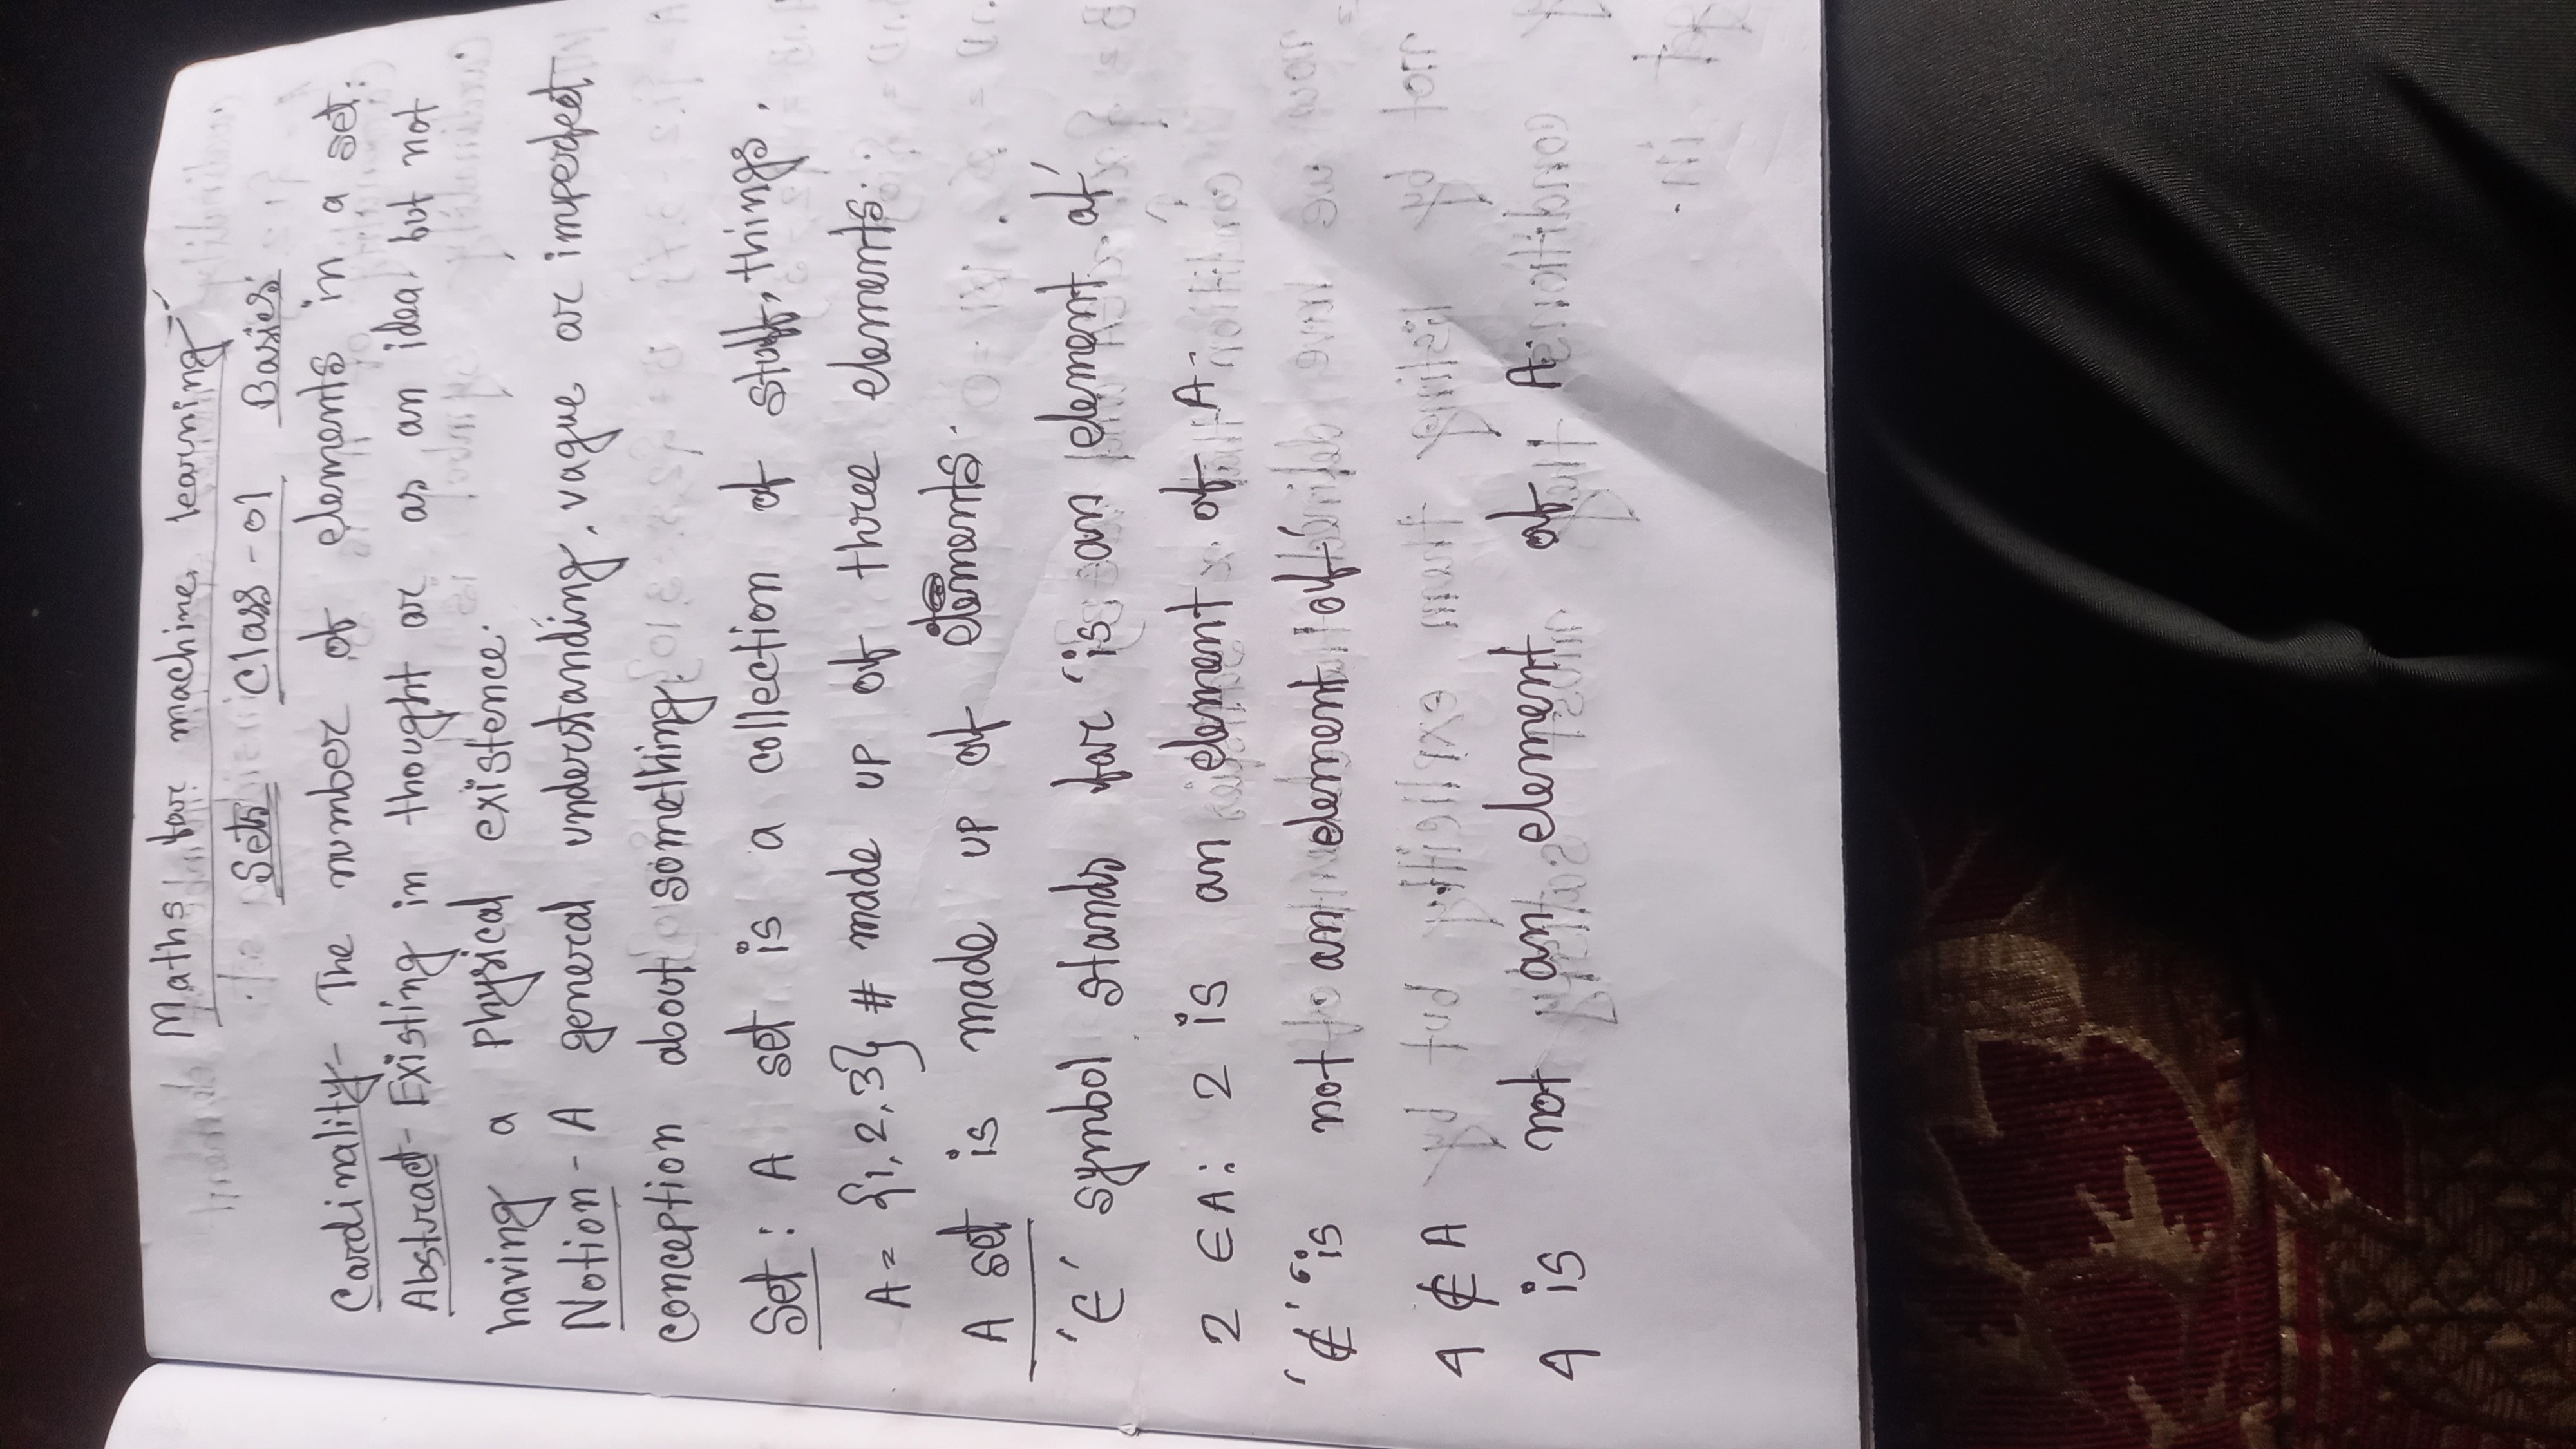 Maths for machine learning
Sets Class-01 Basics
Cardinality- The number of elements in a set.
Abstract- Existing in thought or as an idea but not
having a physical existence.
Notion- A general understanding, vague or imperfect
conception about something.
Set: A set is a collection of stuff, things.
A = {1, 2, 3} # made up of three elements.
A set is made up of elements.
'∈' symbol stands for 'is an element of'
2 ∈ A: 2 is an element of A.
'∉' 'is not an element of'
4 ∉ A
4 is not an element of A.